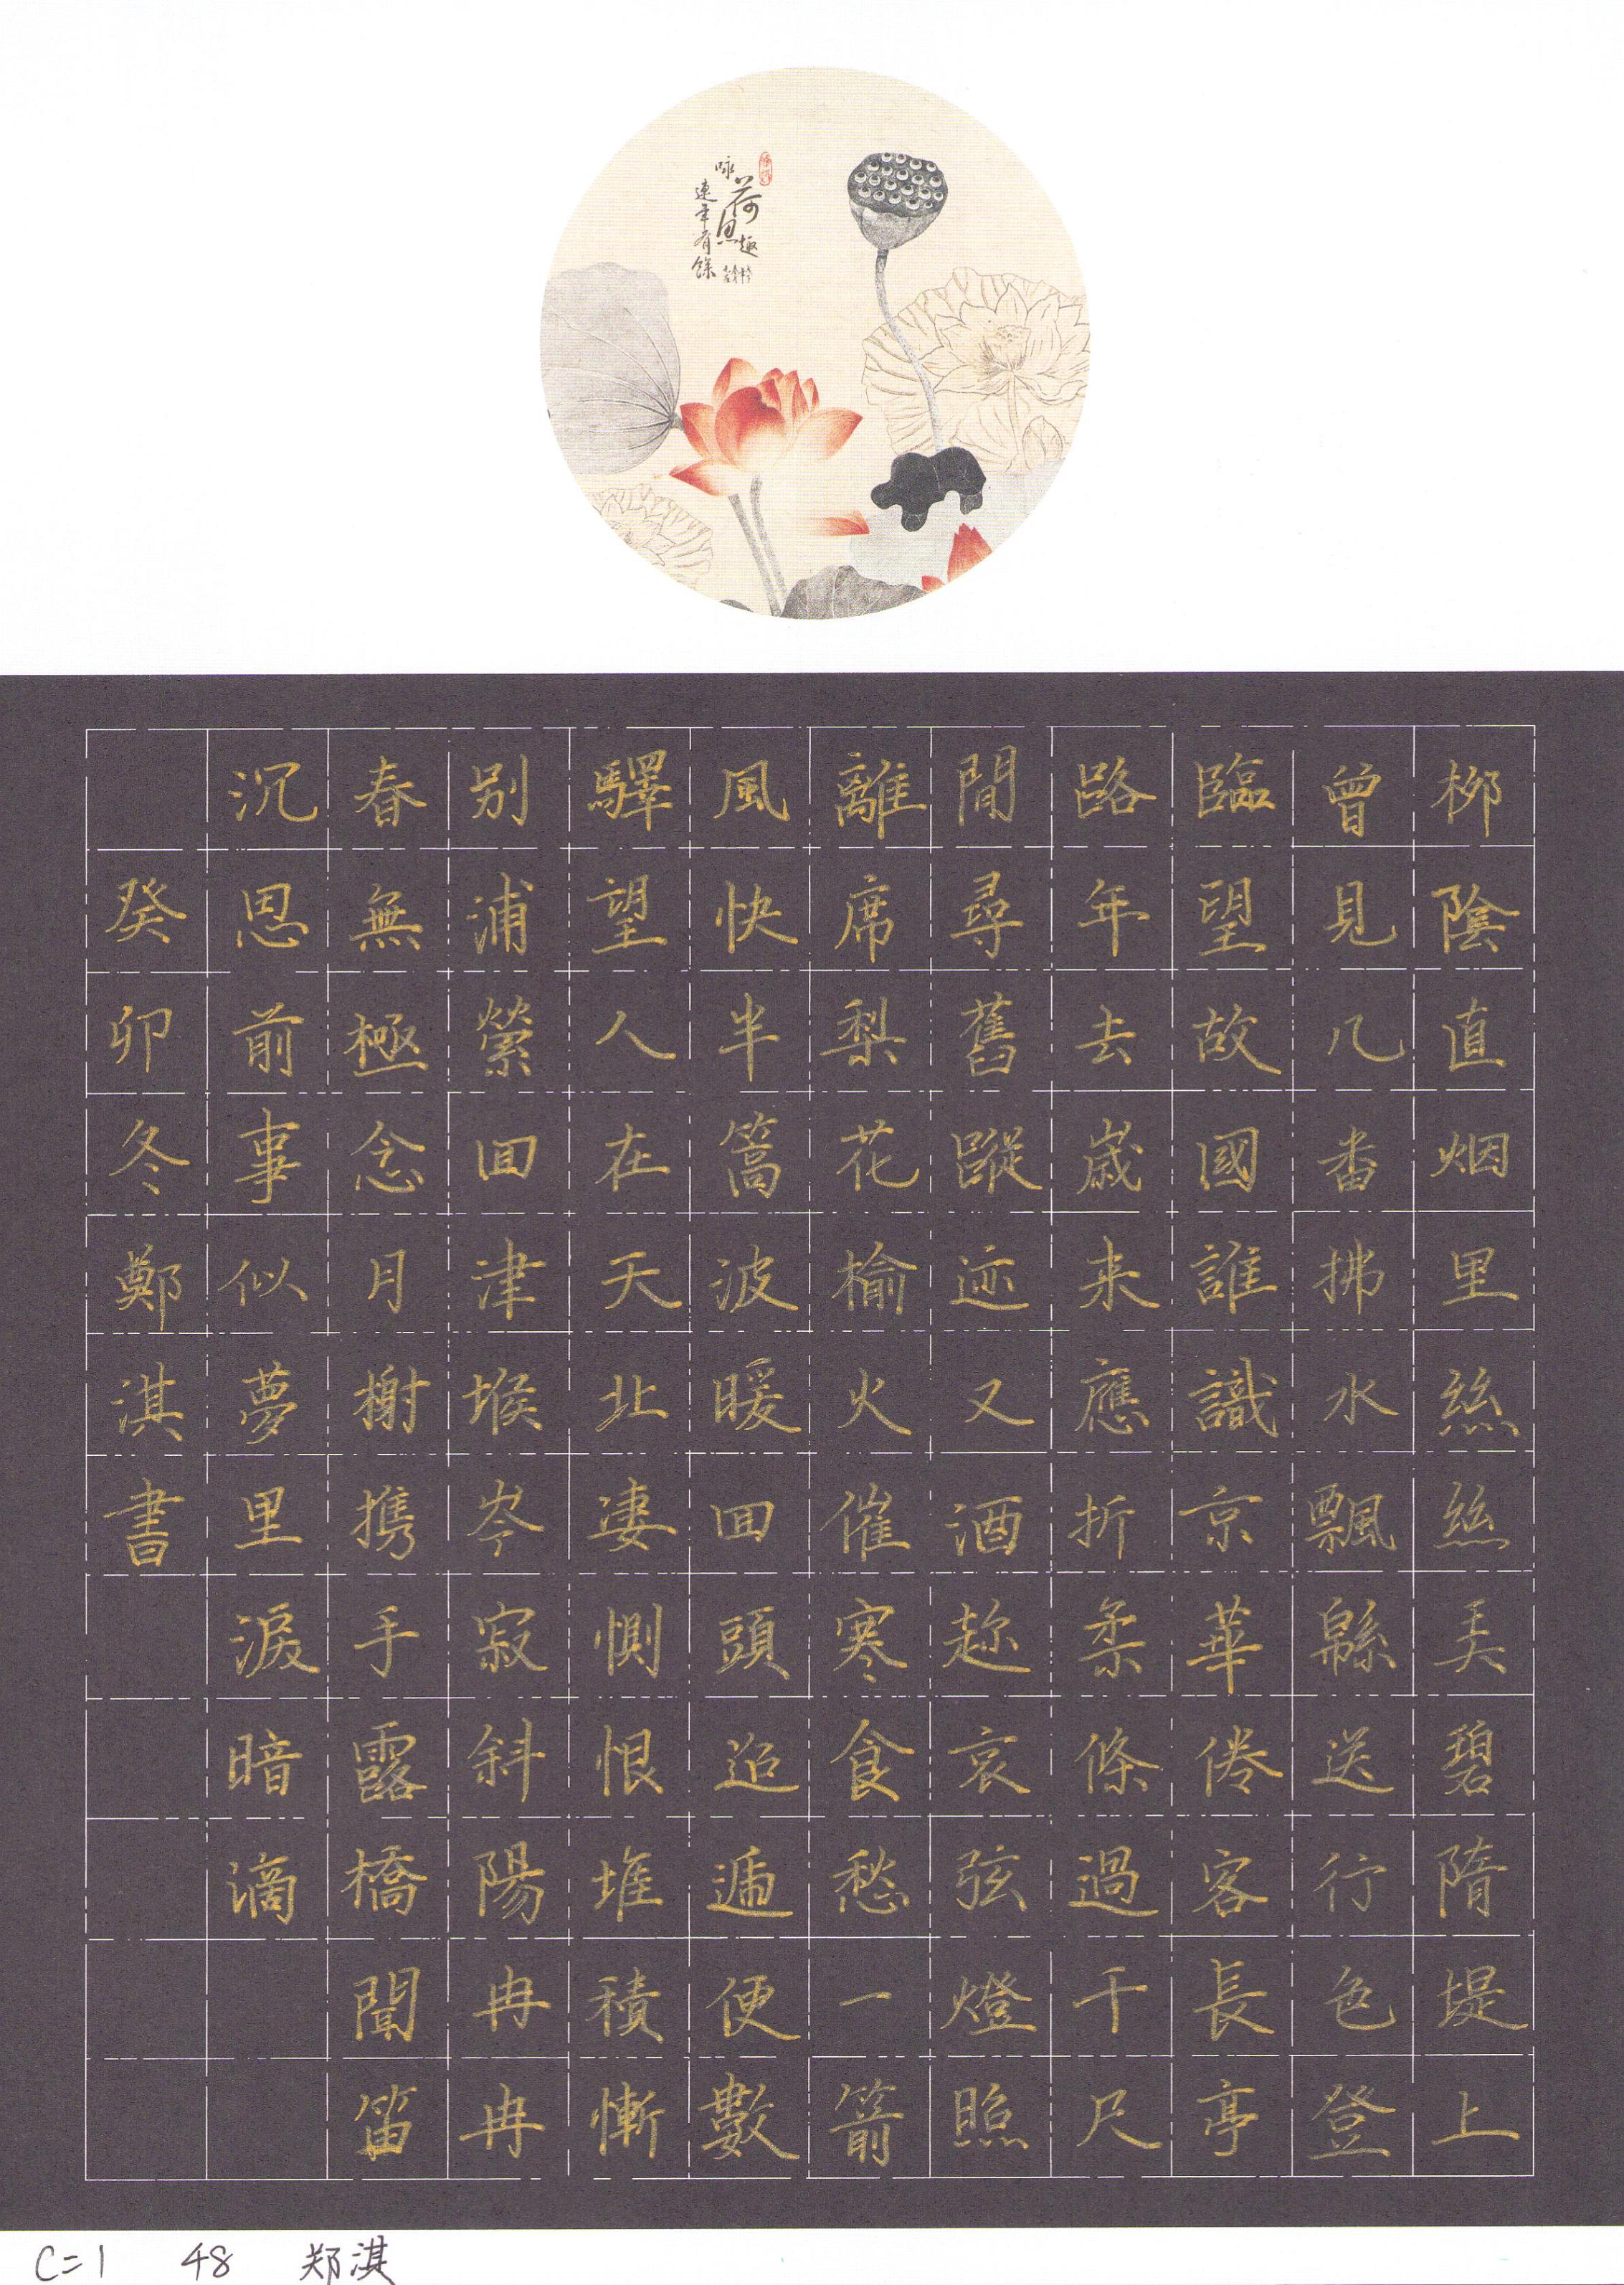 咏荷思趣
連年有餘
柳陰直烟里絲絲弄碧隋堤上
曾見几番拂水飄緜送行色登
臨望故國誰識京華倦客長亭
路年去歲来應折柔條過千尺
閒尋舊蹤迹又酒趂哀弦燈照
離席梨花榆火催寒食愁一箭
風快半篙波暖回頭迢遞便數
驛望人在天北凄惻恨堆積慚
别浦縈回津堠岑寂斜陽冉冉
春無極念月榭携手露橋聞笛
沉思前事似夢里淚暗滴
癸卯冬鄭淇書
C=1 48 郑淇